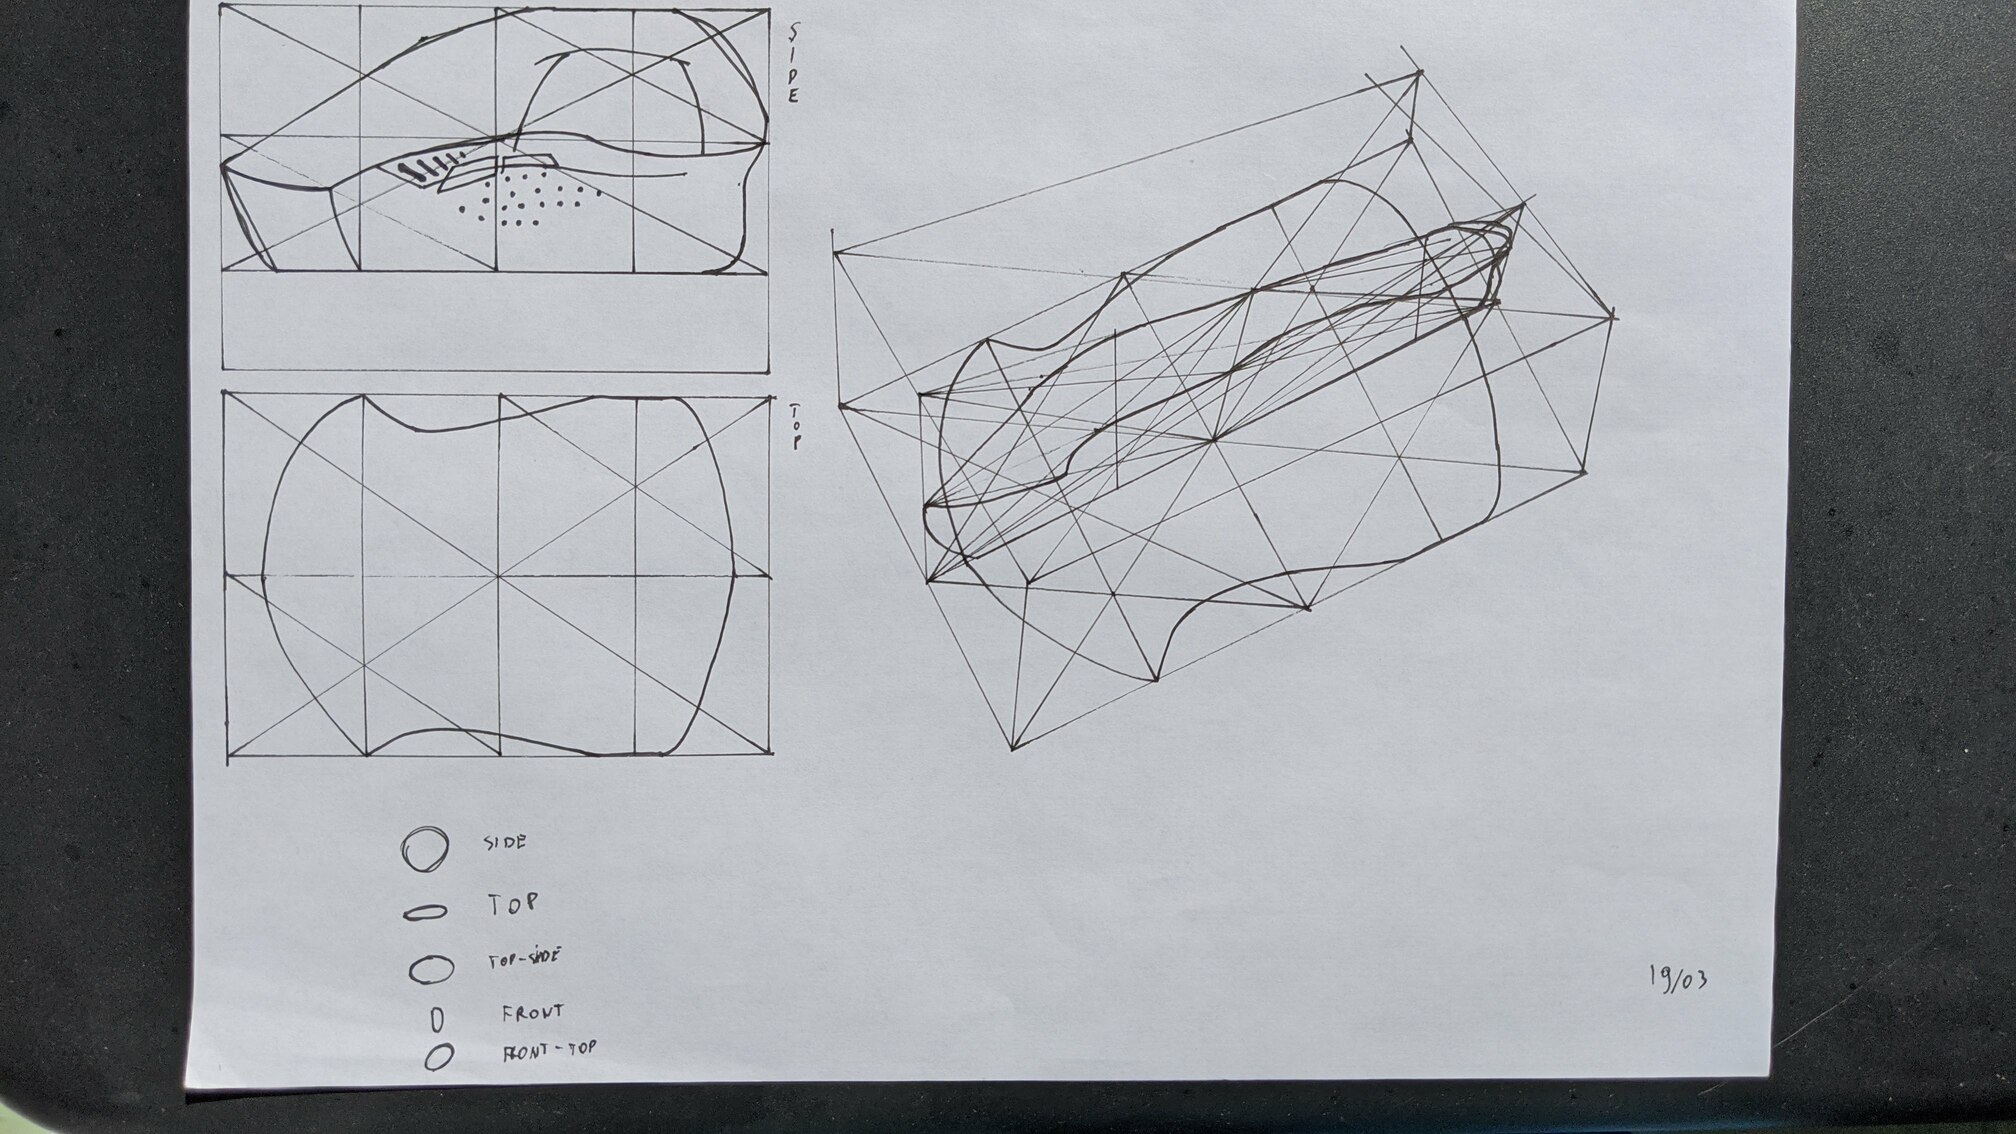 SIDE
TOP
SIDE
TOP
TOP-SIDE
FRONT
FRONT-TOP
19/03